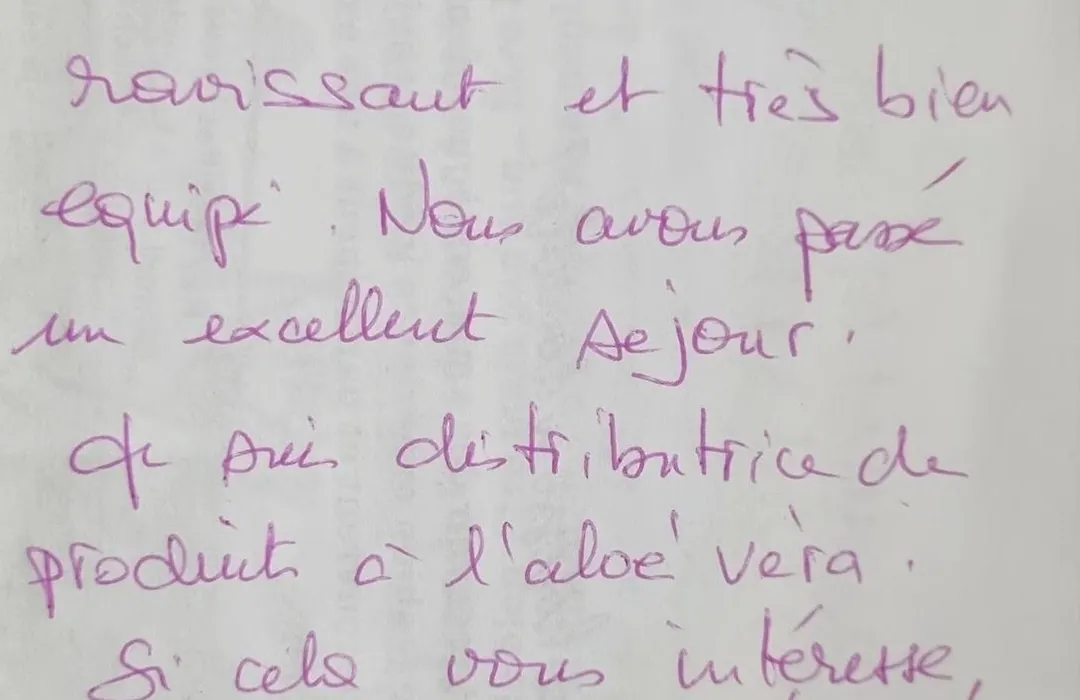 ravissant et très bien
equipé. Nous avons passé
un excellent séjour.
Je suis distributrice de
produits à l'aloé vèra.
Si cela vous intéresse,